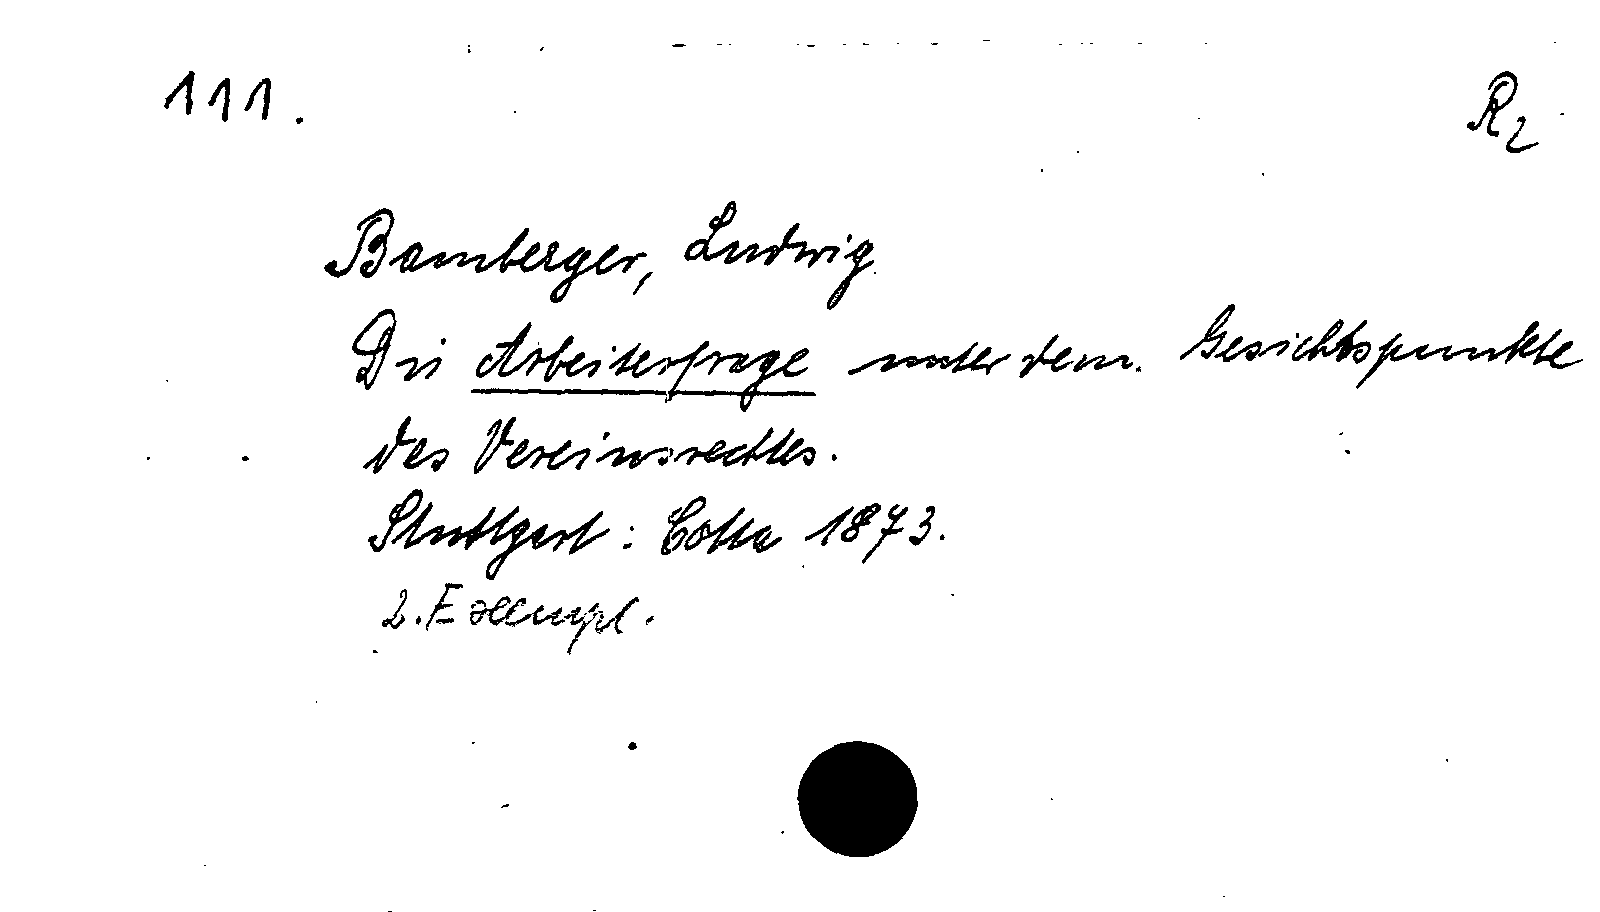 111. R2
Bamberger, Ludwig
Die Arbeiterfrage unter dem Gesichtspunkte
des Vereinsrechtes.
Stuttgart: Cotta 1873.
2. Exempl.